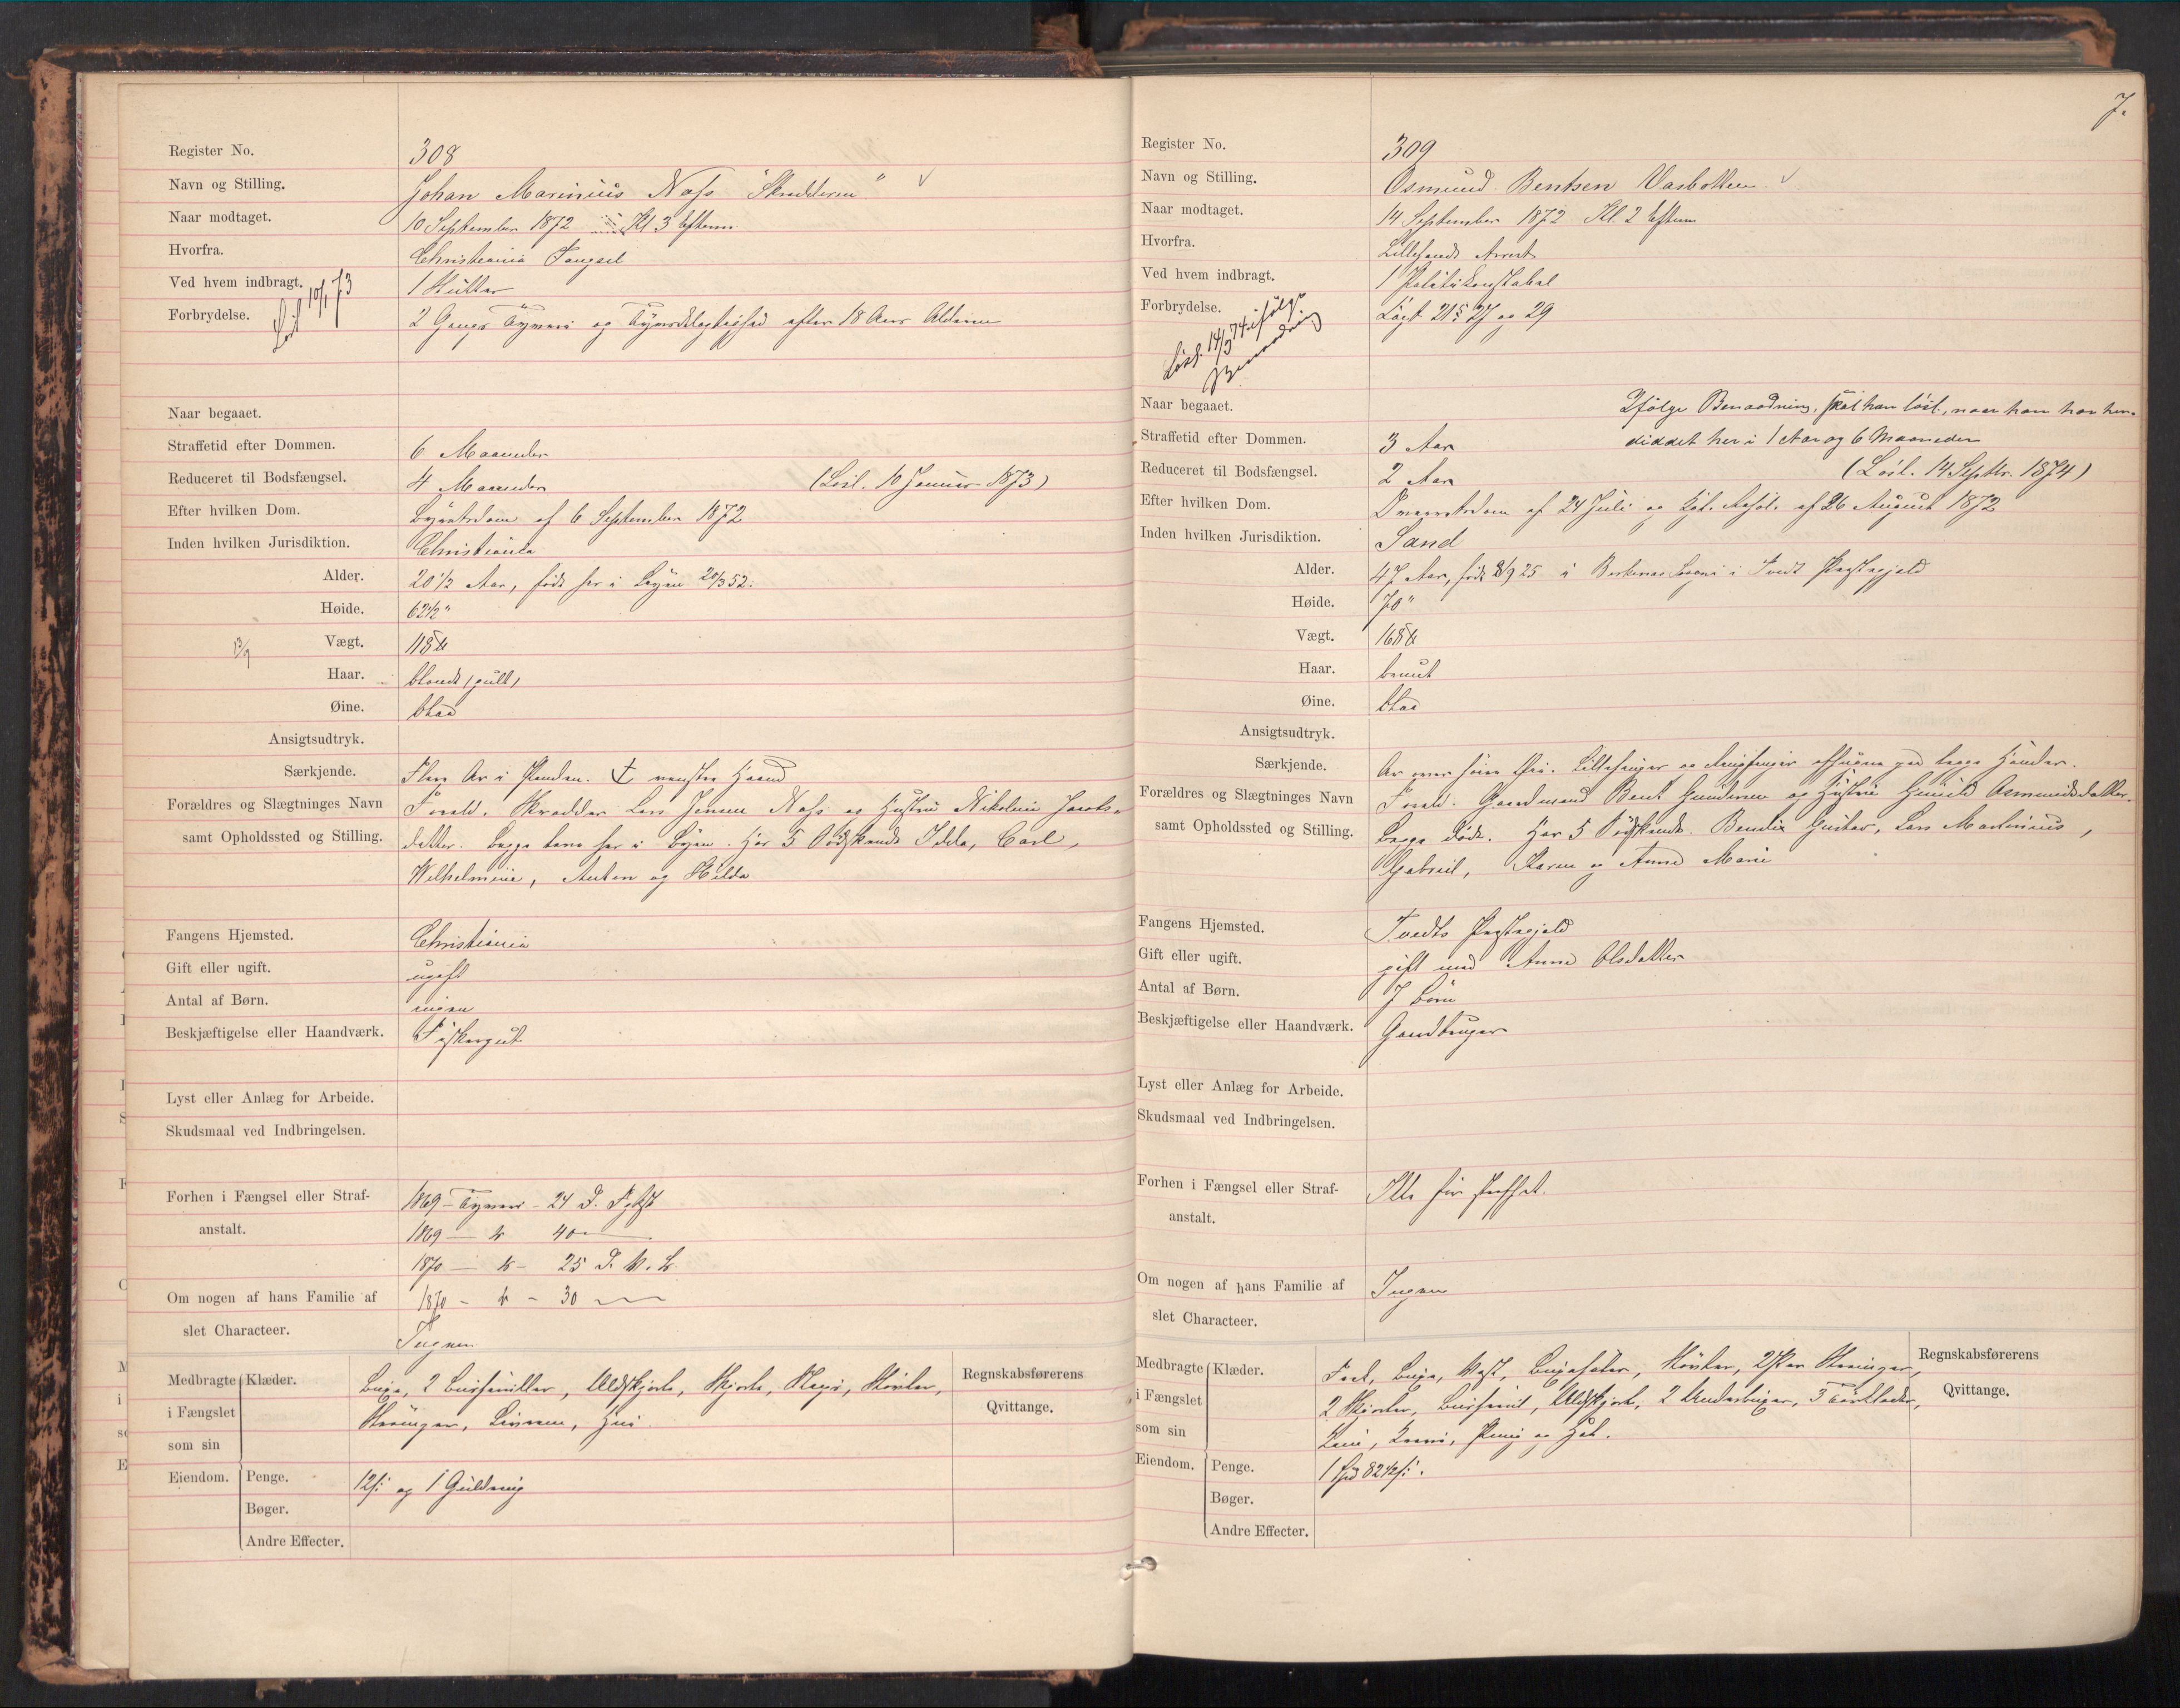 Register No. 308
Navn og Stilling. Johan Marinius Næss "Skrædderen"
Naar modtaget. 10 September 1872 Kl 3 Efterm
Hvorfra. Christiania Fængsel
Ved hvem indbragt. 1 Slutter
Løsl 10/1 73
Forbrydelse. 2 Gange Tyveri og Tyvsdelagtighed efter 18 Aars Alderen
Naar begaaet.
Straffetid efter Dommen. 6 Maaneder
Reduceret til Bodsfængsel. 4 Maaneder (Løsl. 10 Januar 1873)
Efter hvilken Dom. Byretsdom af 6 September 1872
Inden hvilken Jurisdiktion. Christiania
Alder. 20 1/2 Aar, født her i Byen 20/3 52.
Høide. 62 1/2"
13/9 Vægt. 118 ℔
Haar. blondt (guult)
Øine. blaa
Ansigtsudtryk.
Særkjende. Flere Ar i Panden. venstre Haand
Forældres og Slægtninges Navn Foræld. Skrædder Lars Jensen Næss og Hustru Nikoline Jacobs-
samt Opholdssted og Stilling. datter. begge leve her i Byen. Har 5 Sødskende Idda, Carl,
Wilhelmine, Anton og Hilda
Fangens Hjemsted. Christiania
Gift eller ugift. ugift
Antal af Børn. ingen
Beskjæftigelse eller Haandværk. Fiskergut
Lyst eller Anlæg for Arbeide.
Skudsmaal ved Indbringelsen.
Forhen i Fængsel eller Straf- 1869 – Tyveri – 24 D.
anstalt. 1869 — 40
1870 — 25 D. V. B.
Om nogen af hans Familie af 1870 – 30
slet Characteer. Ingen
Medbragte i Fængslet som sin Eiendom.
Klæder. Buxe, 2 Busseruller, Uldskjorte, Skjorte, Støvler,
Strømper, Hue.
Regnskabsførerens Qvittange.
Penge. 12 ſ og 1 Guldring
Bøger.
Andre Effecter.
7.
Register No. 309
Navn og Stilling. Osmund Bentsen Vasbotten
Naar modtaget. 14 September 1872 Kl. 2 Efterm
Hvorfra. Lillesands Arrest
Ved hvem indbragt. 1 Politikonstabel
Forbrydelse. 27 og 29
Løsl. 14/3 74 ifølge
Benaadning
Naar begaaet. Ifølge Benaadning, skal han løsl., naar han har hen-
Straffetid efter Dommen. 3 Aar siddet her i 1 Aar og 6 Maaneder
Reduceret til Bodsfængsel. 2 Aar (Løsl. 14 Septbr. 1874)
Efter hvilken Dom. Overretsdom af 24 Juli og Kgl. Resol. af 26 August 1872
Inden hvilken Jurisdiktion. Sand
Alder. 47 Aar, født 8/9 25 i Birkenæs Sogn i Tvedt Præstegjeld
Høide. 70"
Vægt. 168 ℔
Haar. bruunt
Øine. blaa
Ansigtsudtryk.
Særkjende. Ar over høire Øie. Lillefinger og Ringfinger paa begge Hænder.
Forældres og Slægtninges Navn Foræld. Gaardmand Bent Gundersen og Hustru Gunild Asmundsdatter.
samt Opholdssted og Stilling. begge døde. Har 5 Sødskende. Bendix Gustav, Lars Martinius,
Gabriel, Karen og Anne Marie
Fangens Hjemsted. Tvedts Præstegjeld
Gift eller ugift. gift med Anne Olsdatter
Antal af Børn. 7 Børn
Beskjæftigelse eller Haandværk. Gaardbruger
Lyst eller Anlæg for Arbeide.
Skudsmaal ved Indbringelsen.
Forhen i Fængsel eller Straf-
anstalt. Ikke før straffet.
Om nogen af hans Familie af
slet Characteer. Ingen
Medbragte i Fængslet som sin Eiendom.
Klæder. Buxe, Vest, Buxeseler, Støvler, 2 Par Strømper,
2 Skjorter, Uldskjorte, 2 Underbuxer, 3 Tørklæder,
Pung og Hat.
Regnskabsførerens Qvittange.
Penge. 1 Spd 82 1/2 ſ.
Bøger.
Andre Effecter.